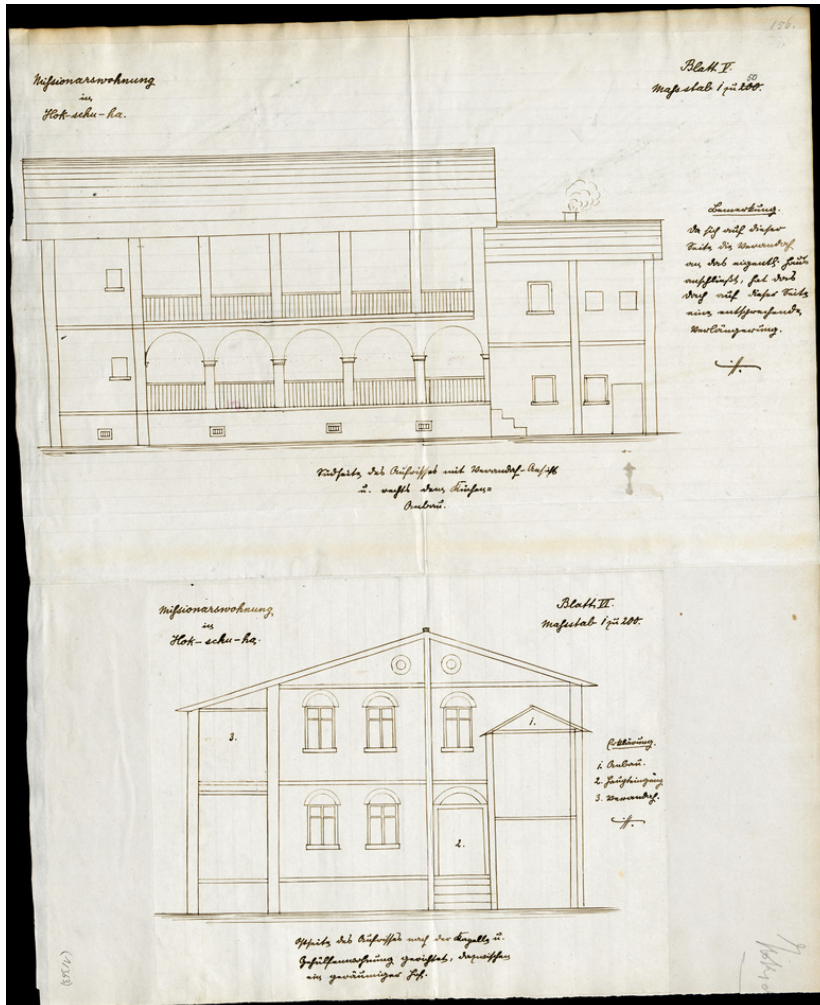 156.
Missionarswohnung
in
Hok-schu-ha.
Blatt V.
Massstab 1 zu 200.
50
Bemerkung.
Da sich auf dieser
Seite die Verandah
an das eigentl. Haus
anschließt, hat das
Dach auf dieser Seite
eine entsprechende
Verlängerung.
Südseite des Aufrisses mit Verandah-Ansicht
u. rechts dem Küchen-
Anbau.
Missionarswohnung
in
Hok-schu-ha.
Blatt VI.
Massstab 1 zu 200.
1.
3.
2.
Erklärung.
1. Anbau.
2. Haupteingang
3. Verandah.
Ostseite des Aufrisses nach der Kapelle u.
Gehülfenwohnung gerichtet, dazwischen
ein geräumiger Hof.